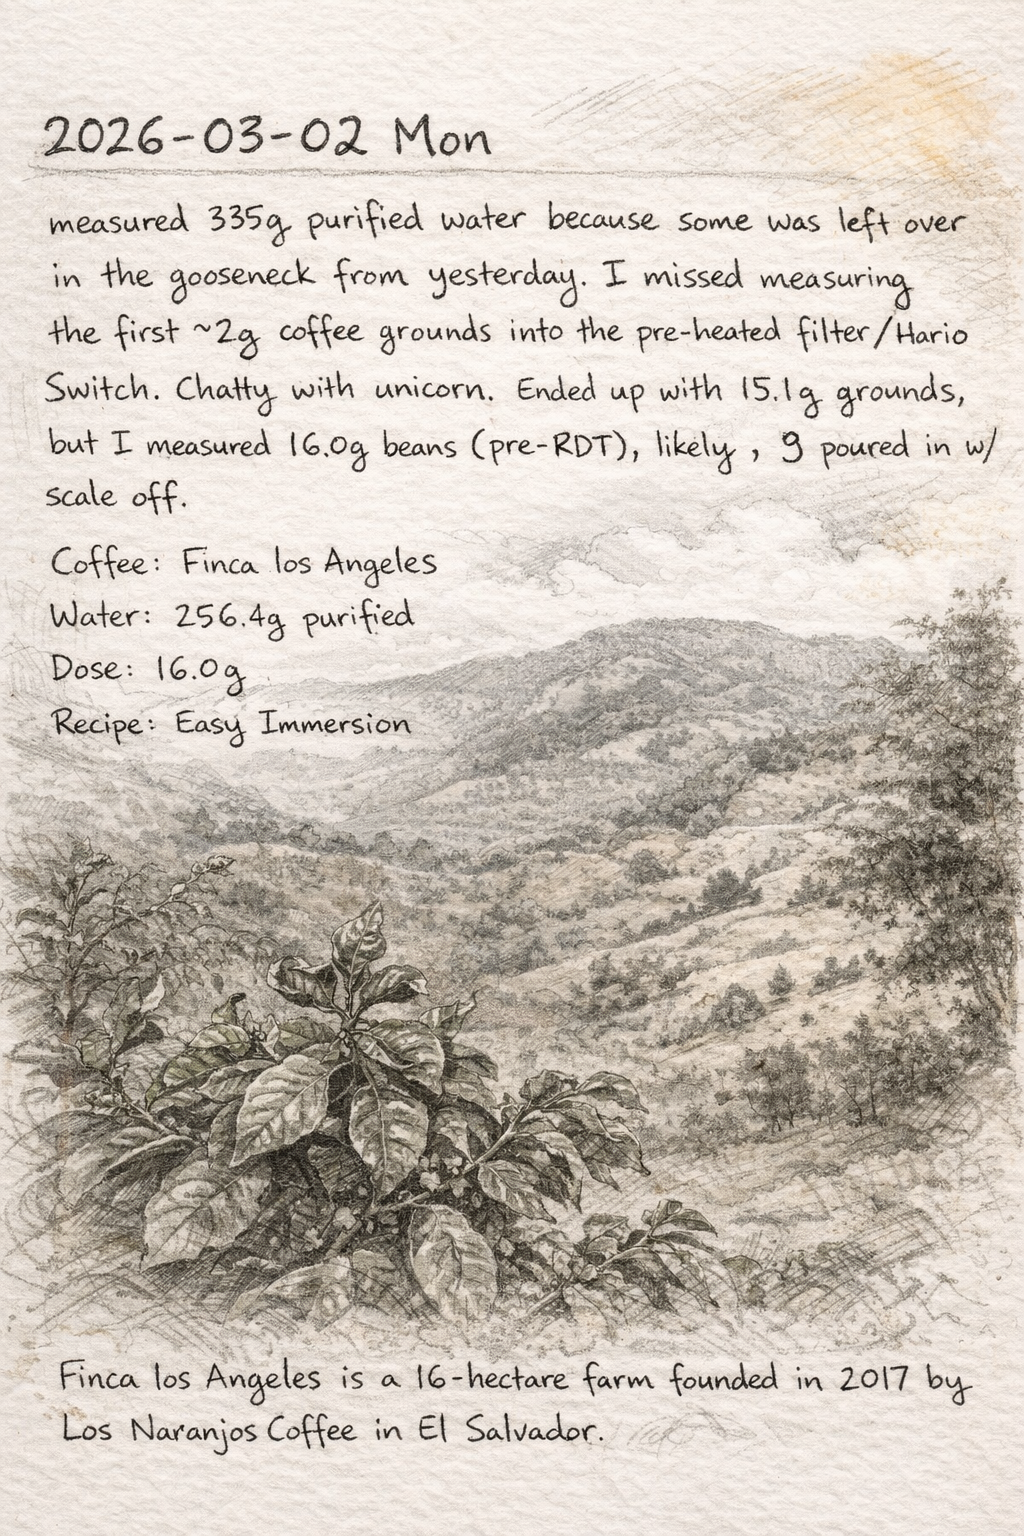 2026-03-02 Mon
measured 335g purified water because some was left over
in the gooseneck from yesterday. I missed measuring
the first ~2g coffee grounds into the pre-heated filter/Hario
Switch. Chatty with unicorn. Ended up with 15.1g grounds,
but I measured 16.0g beans (pre-RDT), likely , 9 poured in w/
scale off.
Coffee: Finca los Angeles
Water: 256.4g purified
Dose: 16.0g
Recipe: Easy Immersion
Finca los Angeles is a 16-hectare farm founded in 2017 by
Los Naranjos Coffee in El Salvador.